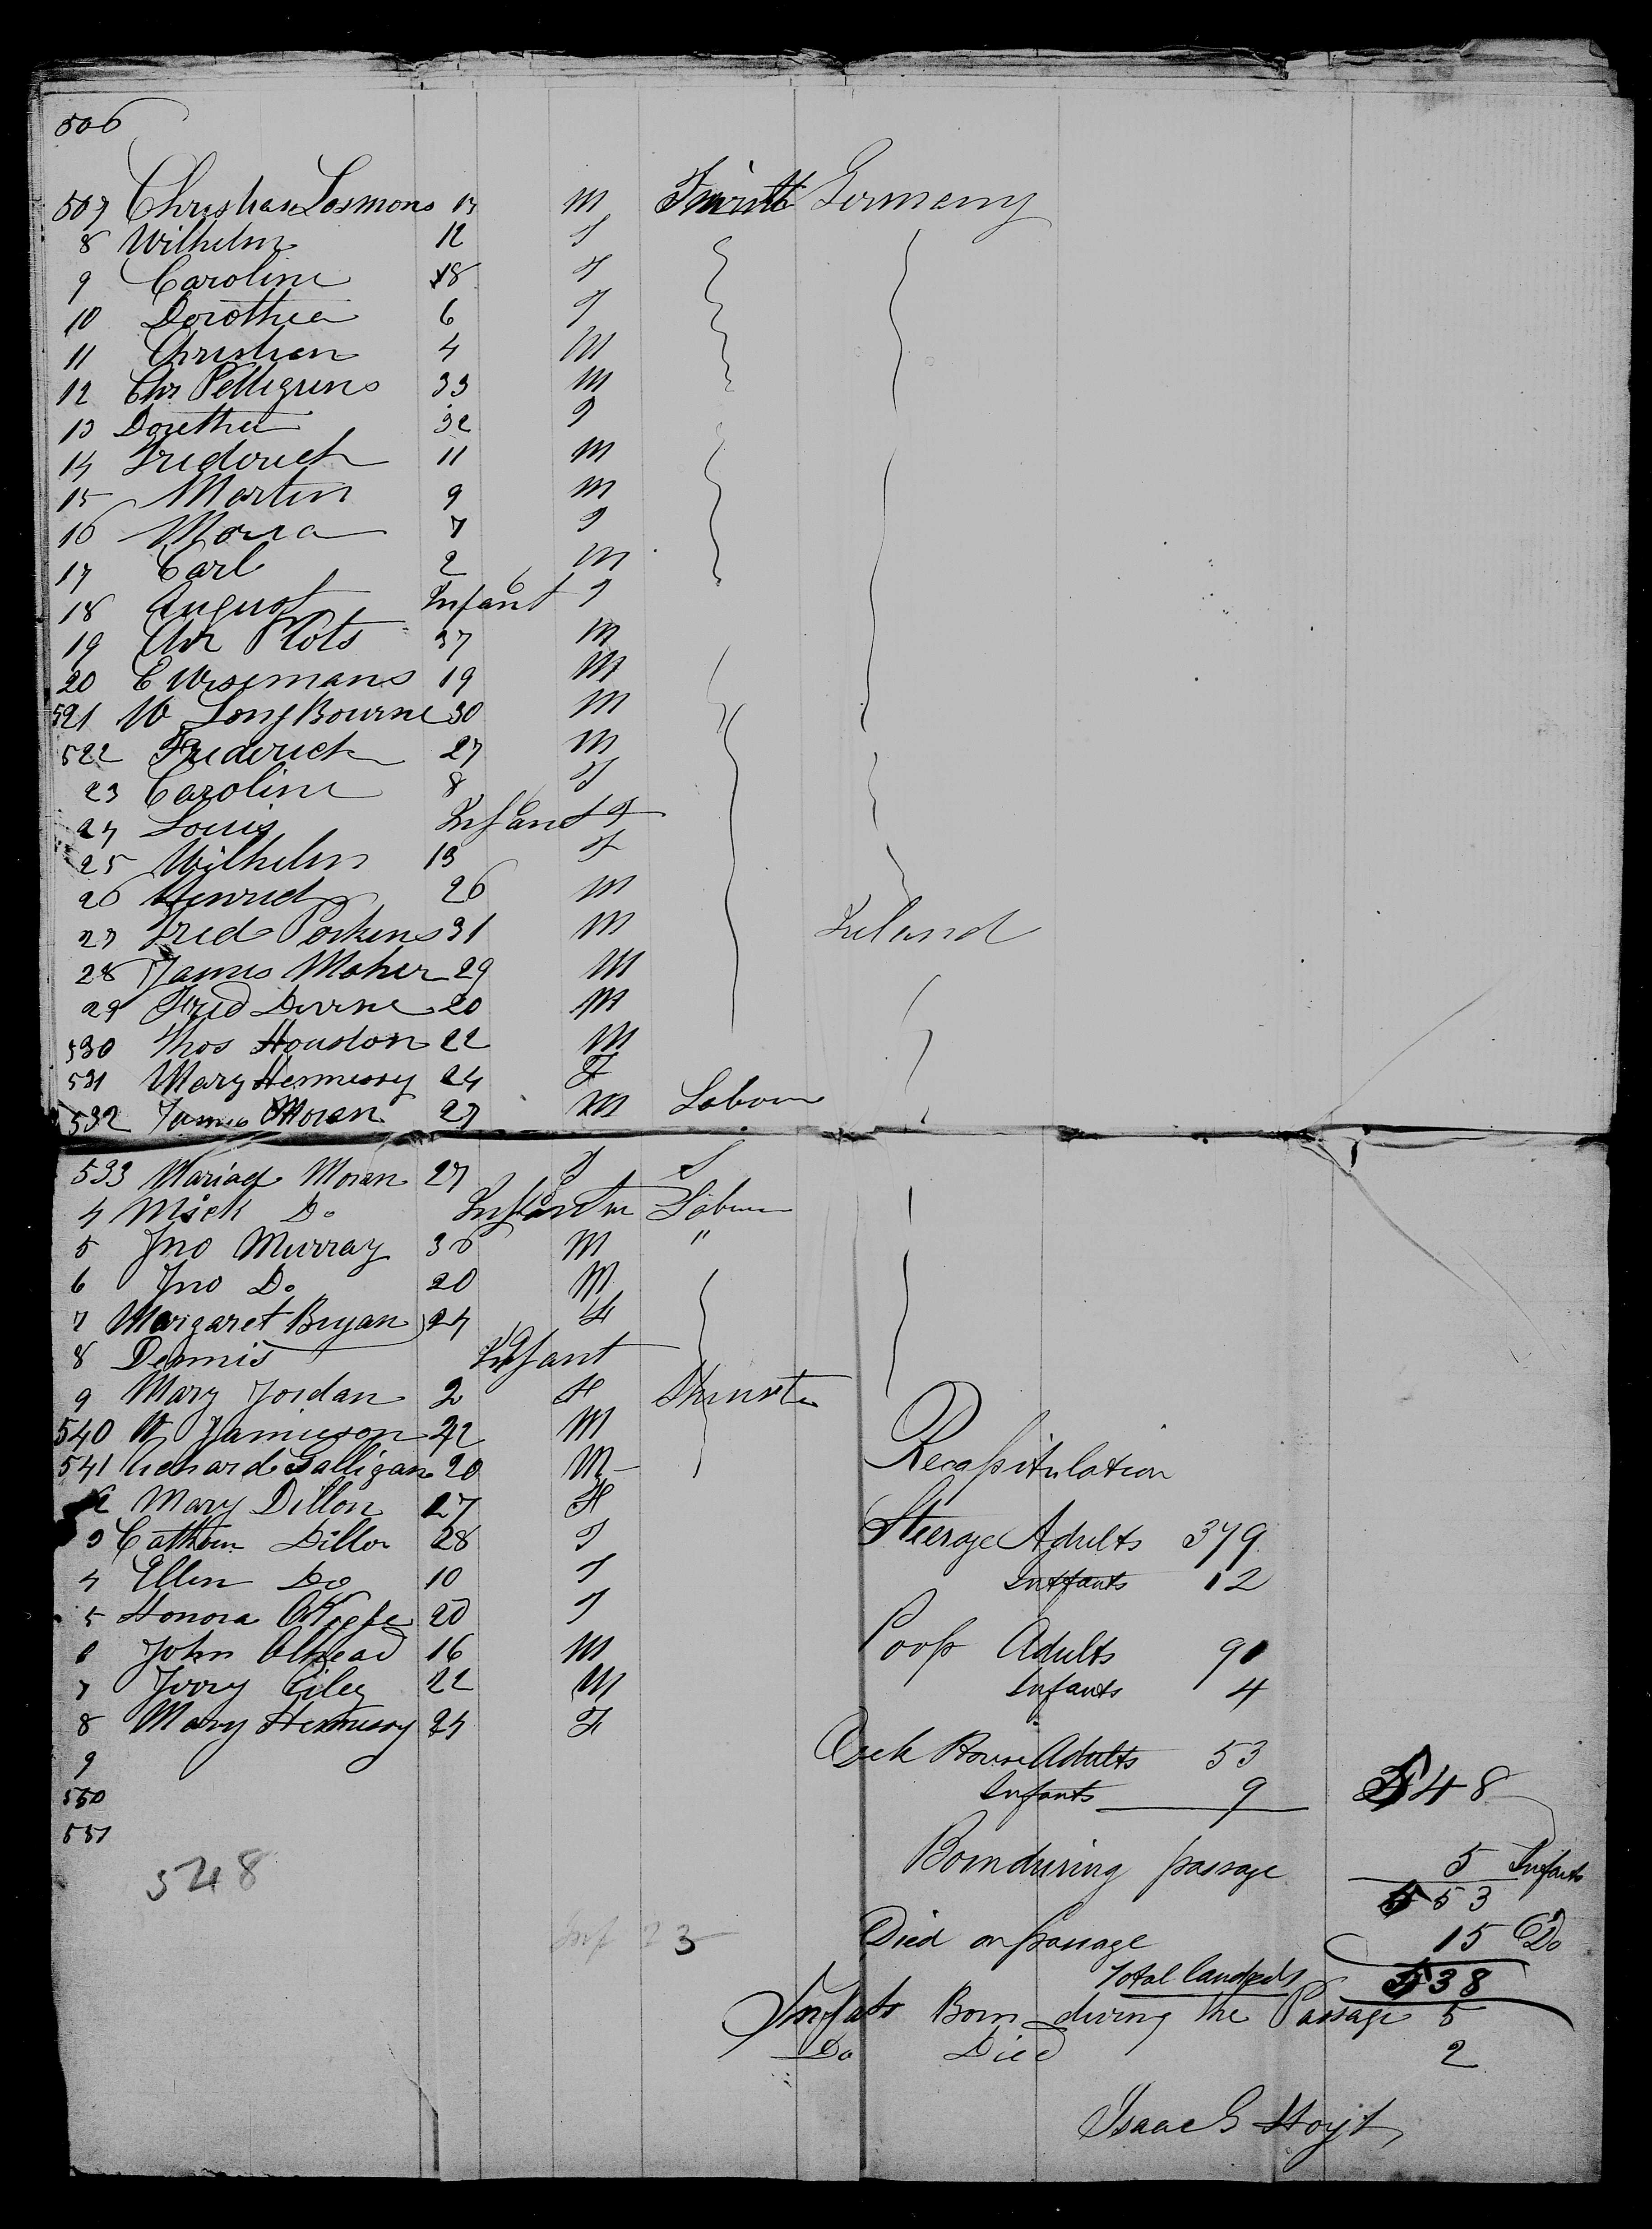 506
507 Christian Losmons 13 M Germany
8 Wilhelm 12 F
9 Caroline 18 F
10 Dorothea 6 F
11 Christian 4 M
12 Chr Pellegrens 33 M
13 Dorethea 32 F
14 Frederich 11 M
15 Martin 9 M
16 Maria 7 F
17 Carl 2 M
18 August Infant F
19 Chr Plots 37 M
20 E Wisemans 19 M
521 W LongBourne 30 M
522 Frederich 27 M
23 Caroline 8 F
24 Louis Infant F
25 Wilhelm 13 F
26 Henrich 26 M
27 Fred Poskens 31 M Ireland
28 James Maher 29 M
29 Fred 20 M
530 Thos Houston 22 M
531 Mary Hennessy 24 F
532 James Moran 27 M Labour
533 Moran 27 F
4 Mick Do Infant m Labour
5 Jno Murray 36 M "
6 Jno Do 20 M
7 Margaret Bryan 24 F
8 Dennis Infant
9 Mary Jordan 2 F
540 W Jamieson 42 M
541 Richard Galligan 20 M
2 Mary Dillon 27 F
3 Cathern Dillon 28 F
4 Ellen Do 10 F
5 Honora OKeefe 20 F
6 John 16 M
7 22 M
8 Mary Hennessy 24 F
9
550
551
548
Inf 23
Recapitulation
Steerage Adults 379
Infants 12
Poop Adults 91
Infants 4
Deck House Adults 53
Infants 9 548
Born during passage 5 Infants
553
Died on passage 15 Do
Total landed 538
Infants Born during the Passage 5
Do Died 2
Isaac G Hoyt